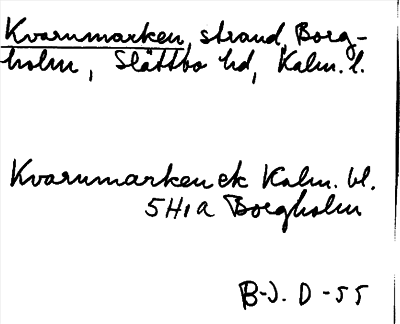 Kvarnmarken, strand, Borg-
holm, Slättbo hd, Kalm. l.
Kvarnmarken ek Kalm. bl.
5H1a Borgholm
B-J. D -55